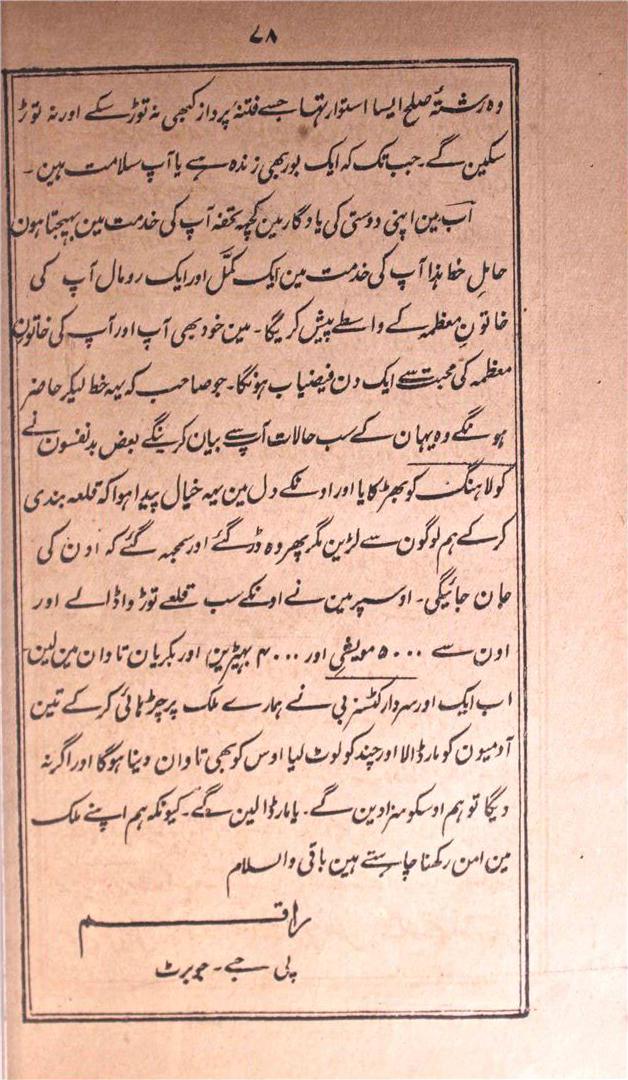 ۷۸
وہ رشتۂ صلح ایسا استوار تہا جسے فتنہ پرداز کبھی نہ توڑ سکے اور نہ توڑ
سکین گے۔ جب تک کہ ایک بوربھی زندہ ہے یا آپ سلامت ہین۔
اَب مین اپنی دوستی کی یادگار مین کچہہ تحفہ آپ کی خدمت مین بہیجتا ہون
حاملِ خط ہذا آپ کی خدمت مین ایک کمّل اور ایک رومال آپ کی
خاتونِ معظمہ کے واسطے پیش کریگا۔ مین خود بھی آپ اور آپ کی خاتونِ
معظمہ کی محبت سے ایک دن فیضیاب ہونگا۔ جو صاحب کہ یہہ خط لیکر حاضر
ہونگے وہ یہان کے سب حالات آپ سے بیان کرینگے بعض بدنفسون نے
کولاہنگ کو بھڑکایا اور اونکے دل مین یہ خیال پیدا ہوا کہ قلعہ بندی
کر کے ہم لوگون سے لڑین مگر پھر وہ ڈر گئے اور سمجہہ گئے کہ اون کی
جان جائیگی۔ اوسپر مین نے اونکے سب قلعے توڑوا ڈالے اور
اون سے ۵۰۰۰ مویشی اور ۴۰۰۰ بہیڑین اور بکریان تاوان مین لین۔
اب ایک اور سردار کٹسزبی نے ہمارے ملک پر چڑہائی کر کے تین
آدمیون کو مار ڈالا اور چند کو لوٹ لیا اوس کو بھی تاوان دینا ہوگا اور اگر نہ
دیگا تو ہم اوسکو سزا دین گے۔ یا مار ڈالین گے۔ کیونکہ ہم اپنے ملک
مین امن رکھنا چاہتے ہین باقی والسلام
راقم
پی جے۔ جوبرٹ